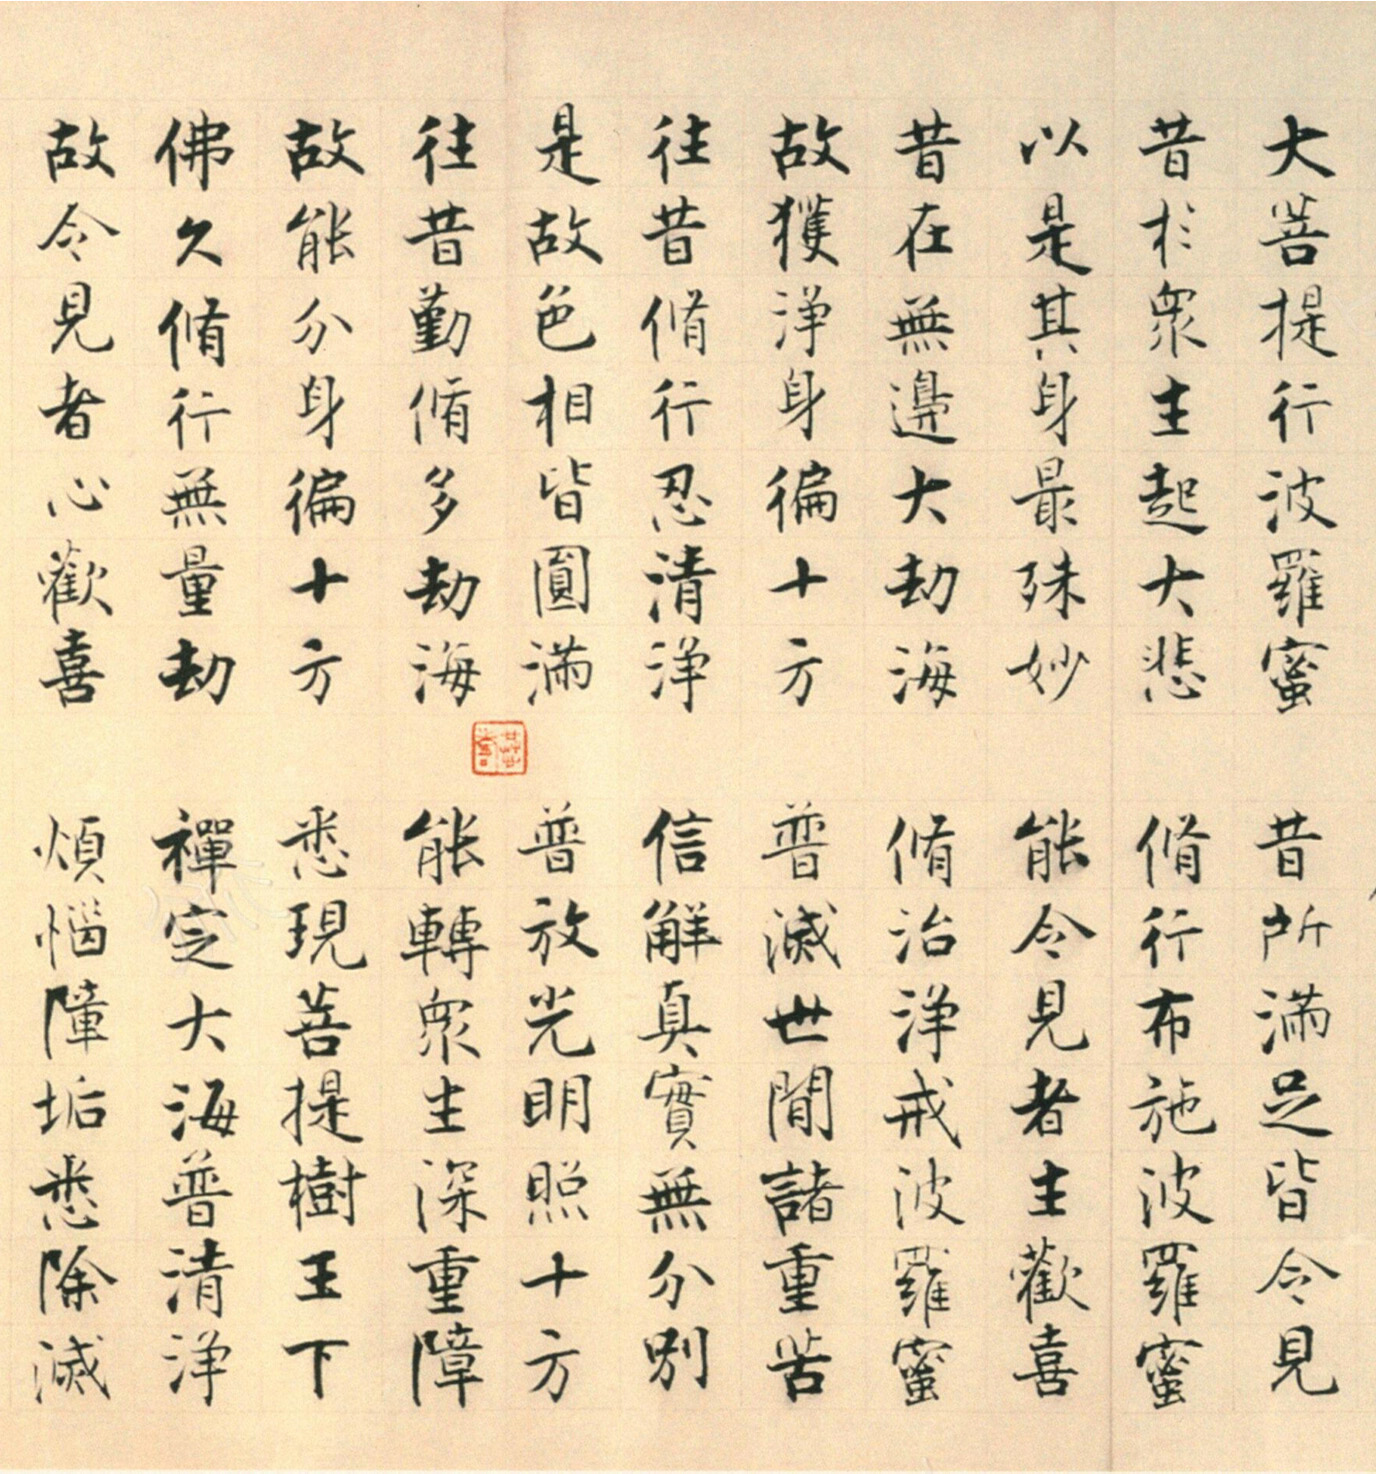 大菩提行波羅蜜 昔所滿足皆令見
昔於衆生起大悲 脩行布施波羅蜜
以是其身最殊妙 能令見者生歡喜
昔在無邊大劫海 脩治淨戒波羅蜜
故獲淨身徧十方 普滅世間諸重苦
往昔脩行忍清淨 信解真實無分別
是故色相皆圓滿 普放光明照十方
往昔勤脩多劫海 能轉衆生深重障
故能分身徧十方 悉現菩提樹王下
佛久脩行無量劫 禪定大海普清淨
故令見者心歡喜 煩惱障垢悉除滅